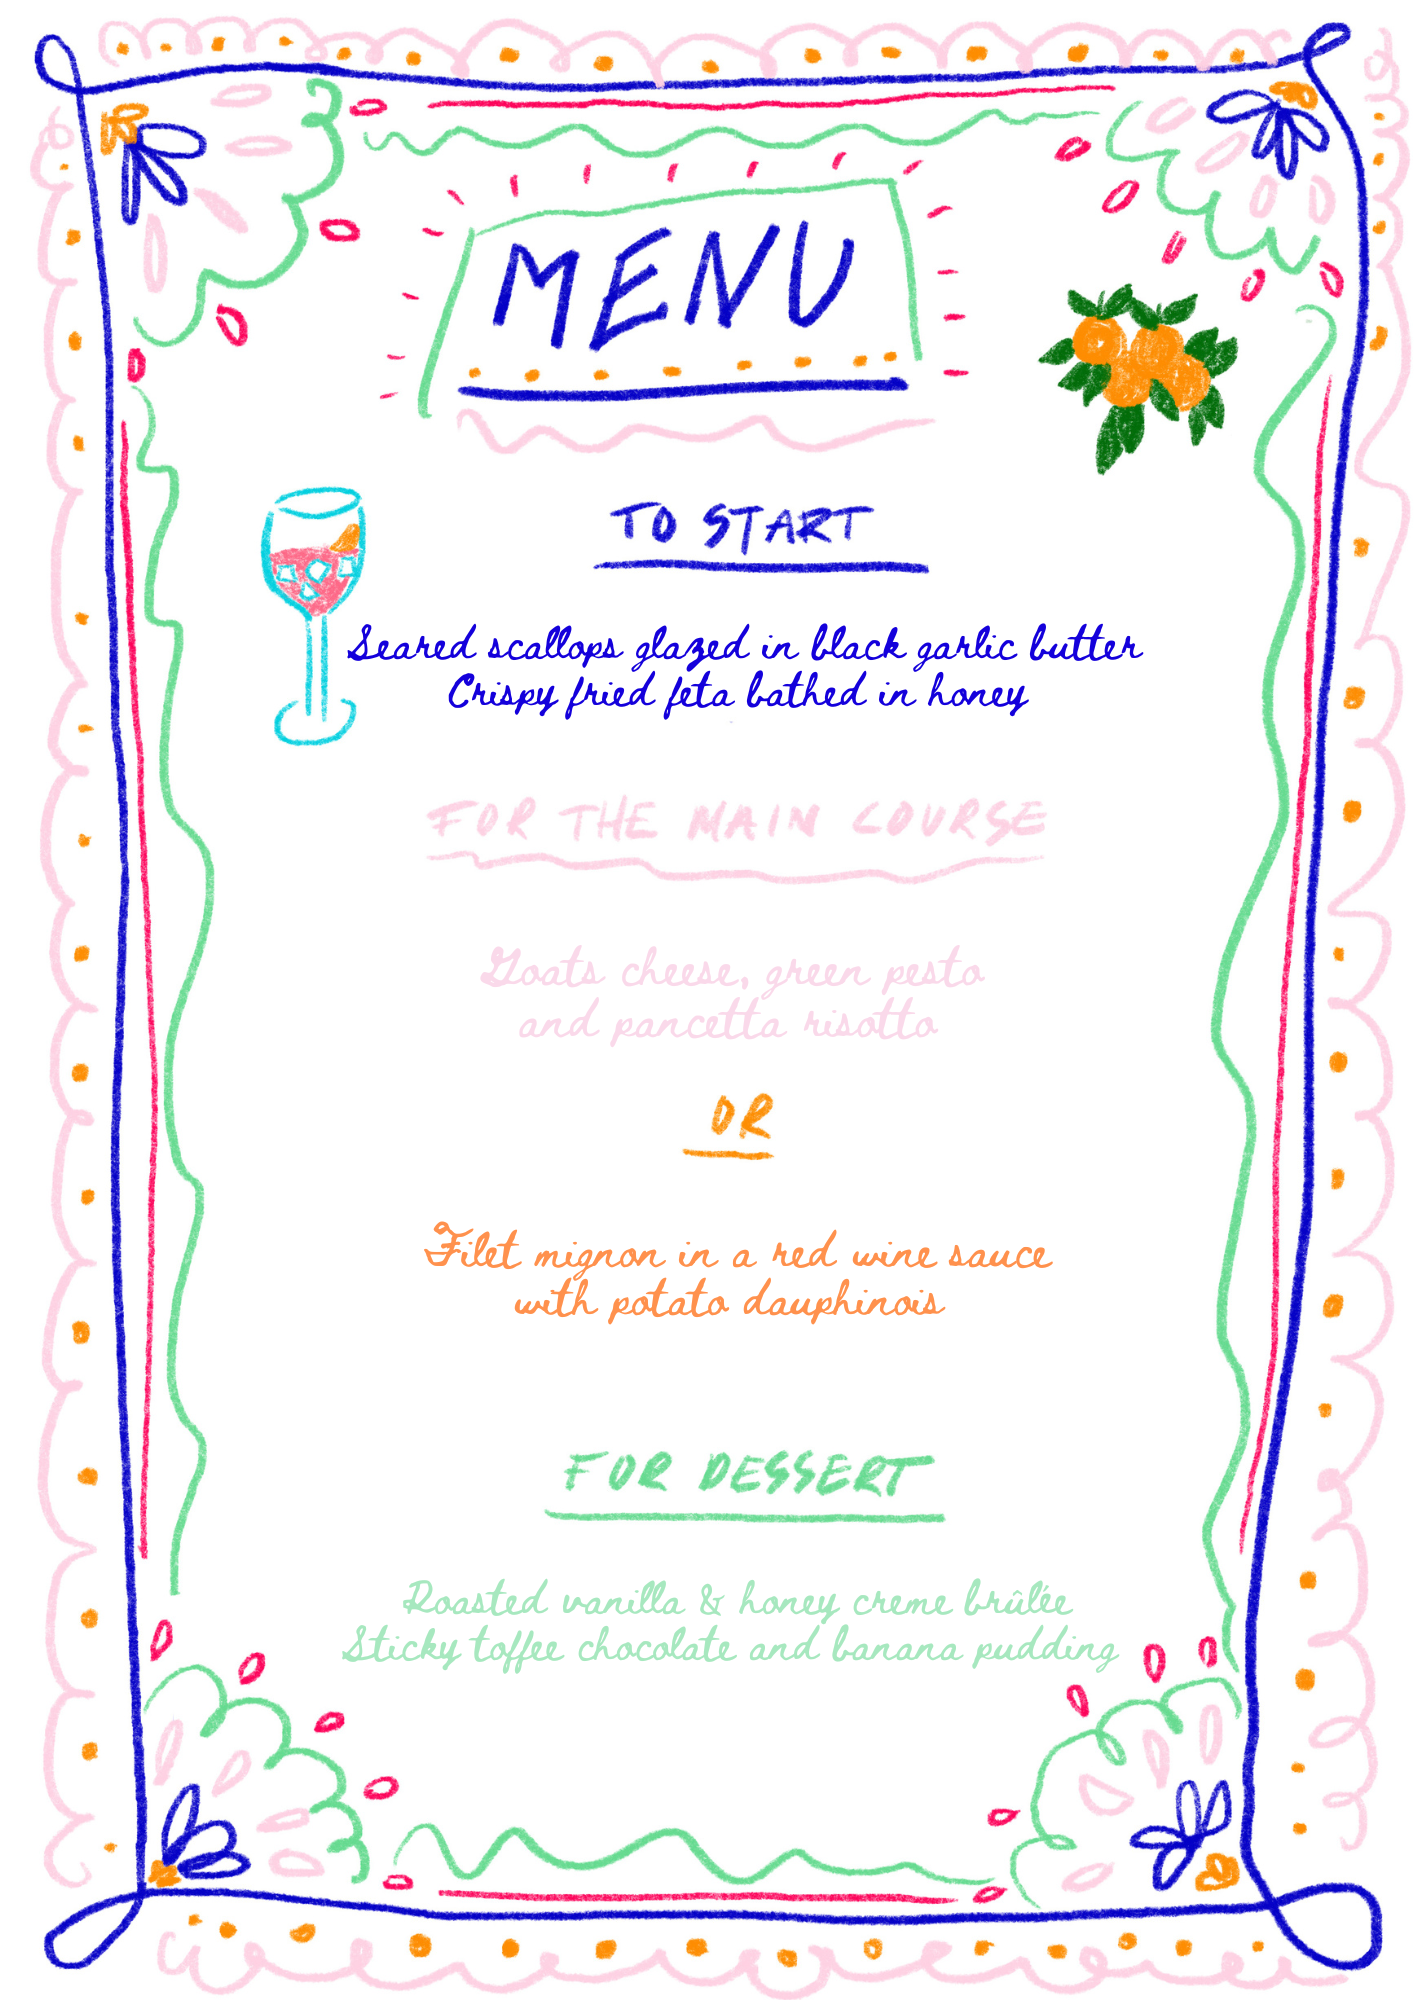 MENU
TO START
Seared scallops glazed in black garlic butter
Crispy fried feta bathed in honey
FOR THE MAIN COURSE
Goats cheese, green pesto
and pancetta risotto
OR
Filet mignon in a red wine sauce
with potato dauphinois
FOR DESSERT
Roasted vanilla & honey creme brûlée
Sticky toffee chocolate and banana pudding